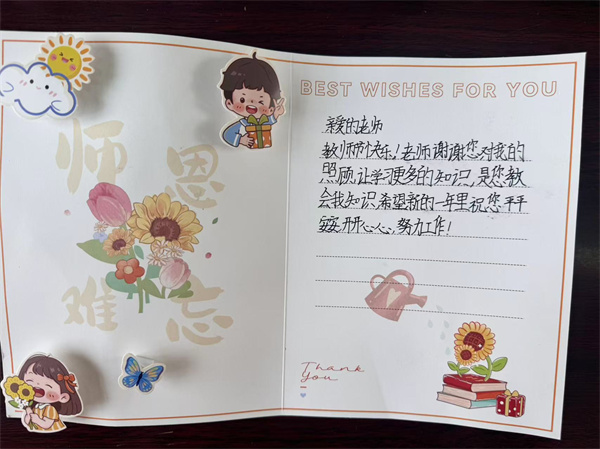 师恩
难忘
BEST WISHES FOR YOU
亲爱的老师
教师节快乐!老师谢谢您对我的
照顾,让学习更多的知识,是您教
会我知识,希望新的一年里祝您平平
安安开开心心,努力工作!
Thank
You